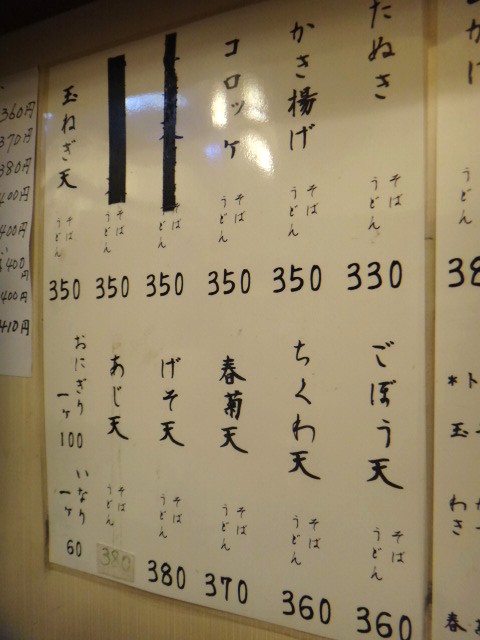 たぬき そば うどん 330
かき揚げ そば うどん 350
コロッケ そば うどん 350
そば うどん 350
そば うどん 350
玉ねぎ天 そば うどん 350
ごぼう天 そば うどん 360
ちくわ天 そば うどん 360
春菊天 そば うどん 370
げそ天 そば うどん 380
あじ天 そば うどん 380
おにぎり 一ヶ 100
いなり 一ヶ 60
うどん
38
*ト
玉
わき
春
360円
370円
380円
400円
400円
400円
400円
410円